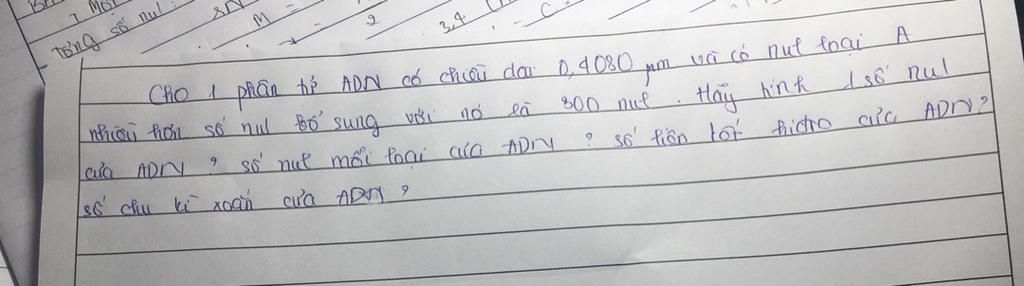 Tổng số nul:
M =
2
3,4
Cho 1 phân tử ADN có chiều dài 0,4080 µm và có nul loại A
nhiều hơn số nul bổ sung với nó là 300 nul. Hãy tính số nul
của ADN? số nul mỗi loại của ADN? số liên kết hiđro của ADN?
số chu kì xoắn của ADN?